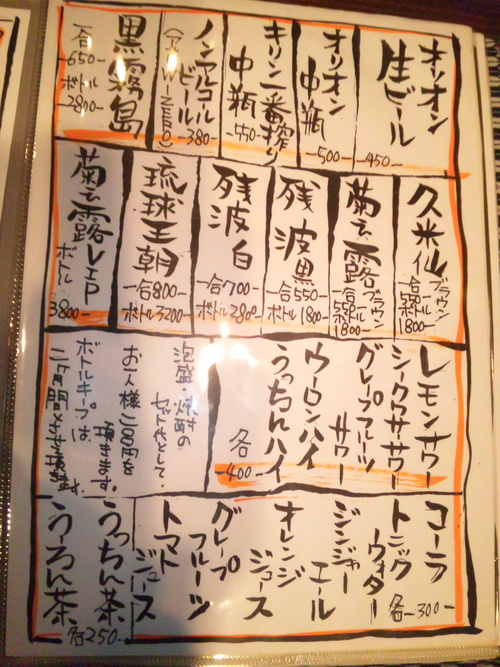 オリオン
生ビール
-450-
オリオン
中瓶
-500-
キリン一番搾り
中瓶
-550-
ノンアルコール
ビール
-380-
黒霧島
一合
-650-
ボトル
-2800-
久米仙
ブラウン
一合550-
ボトル1800-
菊之露
ブラウン
一合550-
ボトル1800-
残波黒
一合550-
ボトル1800-
残波白
一合700-
ボトル2800-
琉球王朝
一合800-
ボトル3200-
菊之露VIP
ボトル
3800-
レモンサワー
シークワサーサワー
グレープフルーツ
サワー
ウーロンハイ
うっちんハイ
各
-400-
泡盛・焼酎の
セット代として、
お一人様200円を
頂きます。
ボトルキープは
二ヶ月間とさせて頂きます。
コーラ
トニック
ウォーター
ジンジャー
エール
各-300-
オレンジ
ジュース
グレープ
フルーツ
トマト
ジュース
うっちん茶
うーろん茶
各250-